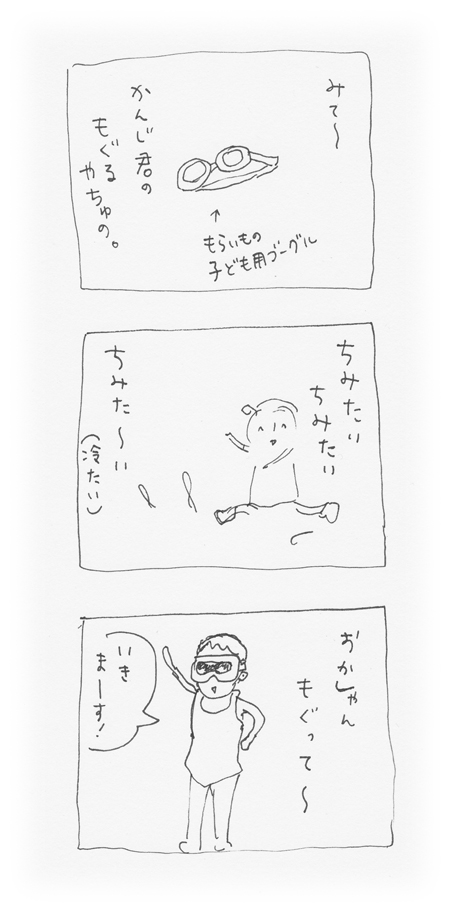 みて〜
かんじ君の
もぐる
やちゅの。
↑
もらいもの
子ども用ゴーグル
ちみたい
ちみたい
ちみた〜い
(冷たい)
おかしゃん
もぐって〜
いき
まーす!